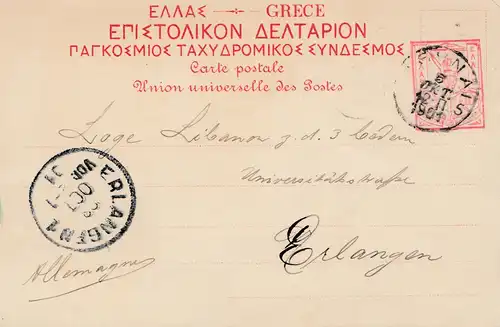 ΕΛΛΑΣ — GRECE
ΕΠΙΣΤΟΛΙΚΟΝ ΔΕΛΤΑΡΙΟΝ
ΠΑΓΚΟΣΜΙΟΣ ΤΑΧΥΔΡΟΜΙΚΟΣ ΣΥΝΔΕΣΜΟΣ
Carte postale
Union universelle des Postes
Loge Libanon z. d. 3 Cedern
Universitätsstrasse
Erlangen
Allemagne
ERLANGEN 1
OCT
VOR
ΟΚΤ
1901